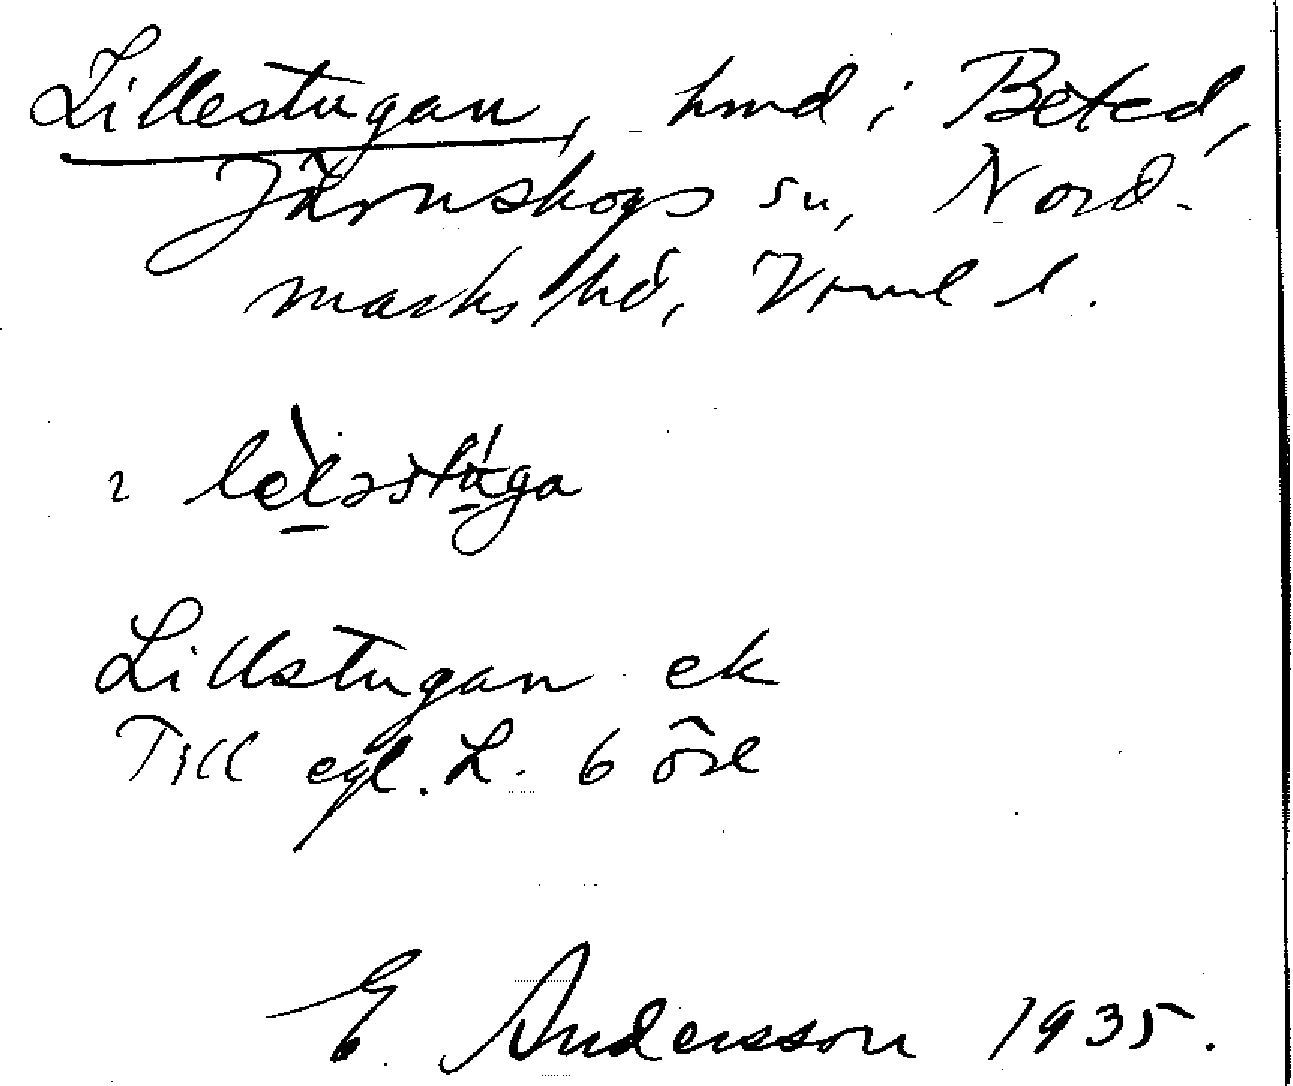 Lillestugan, hmd i Beted,
Järnskogs sn, Nord-
marks hd, Vrml l.
lèləstúga
Lillstugan ek
Till egl. L. 6 öre
E Andersson 1935.